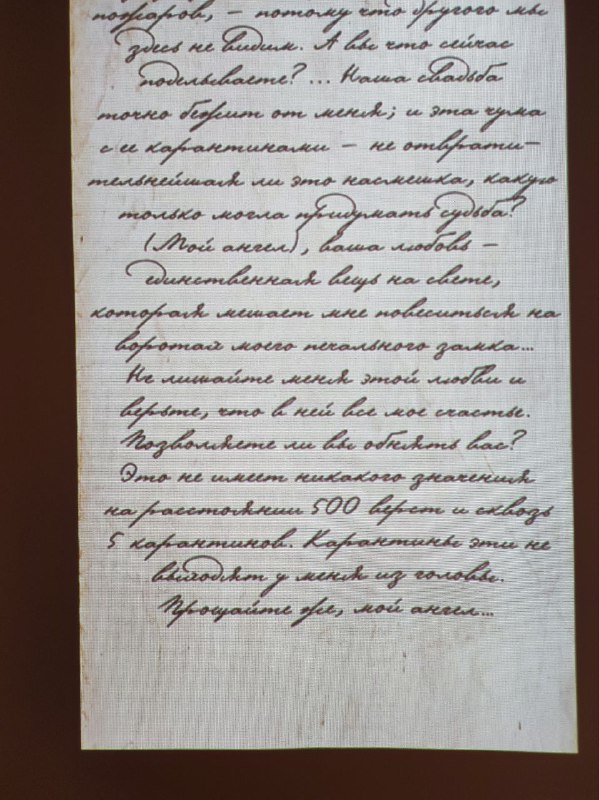 пожаров, – потому что другого мы
здесь не видим. А вы что сейчас
поделываете? ... Наша свадьба
точно бежит от меня; и эта чума
с ее карантинами – не отврати-
тельнейшая ли это насмешка, какую
только могла придумать судьба?
(Мой ангел), ваша любовь –
единственная вещь на свете,
которая мешает мне повеситься на
воротах моего печального замка...
Не лишайте меня этой любви и
верьте, что в ней все мое счастье.
Позволяете ли вы обнять вас?
Это не имеет никакого значения
на расстоянии 500 верст и сквозь
5 карантинов. Карантины эти не
выходят у меня из головы.
Прощайте же, мой ангел...